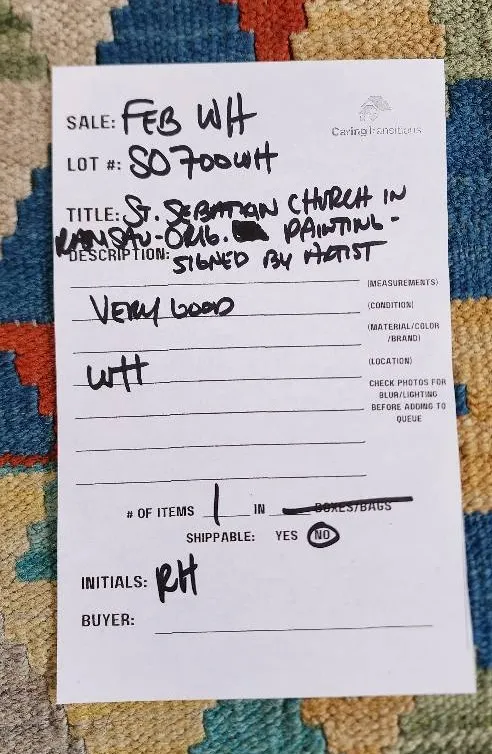 SALE: FEB WH
CaringTransitions
LOT #: SO700WH
TITLE: ST. SEBATIAN CHURCH IN
RAMSAU-ORIG. PAINTING-
DESCRIPTION: SIGNED BY ARTIST
(MEASUREMENTS)
VERY GOOD (CONDITION)
(MATERIAL/COLOR
/BRAND)
WH (LOCATION)
CHECK PHOTOS FOR
BLUR/LIGHTING
BEFORE ADDING TO
QUEUE
# OF ITEMS 1 IN BOXES/BAGS
SHIPPABLE: YES NO
INITIALS: RH
BUYER: